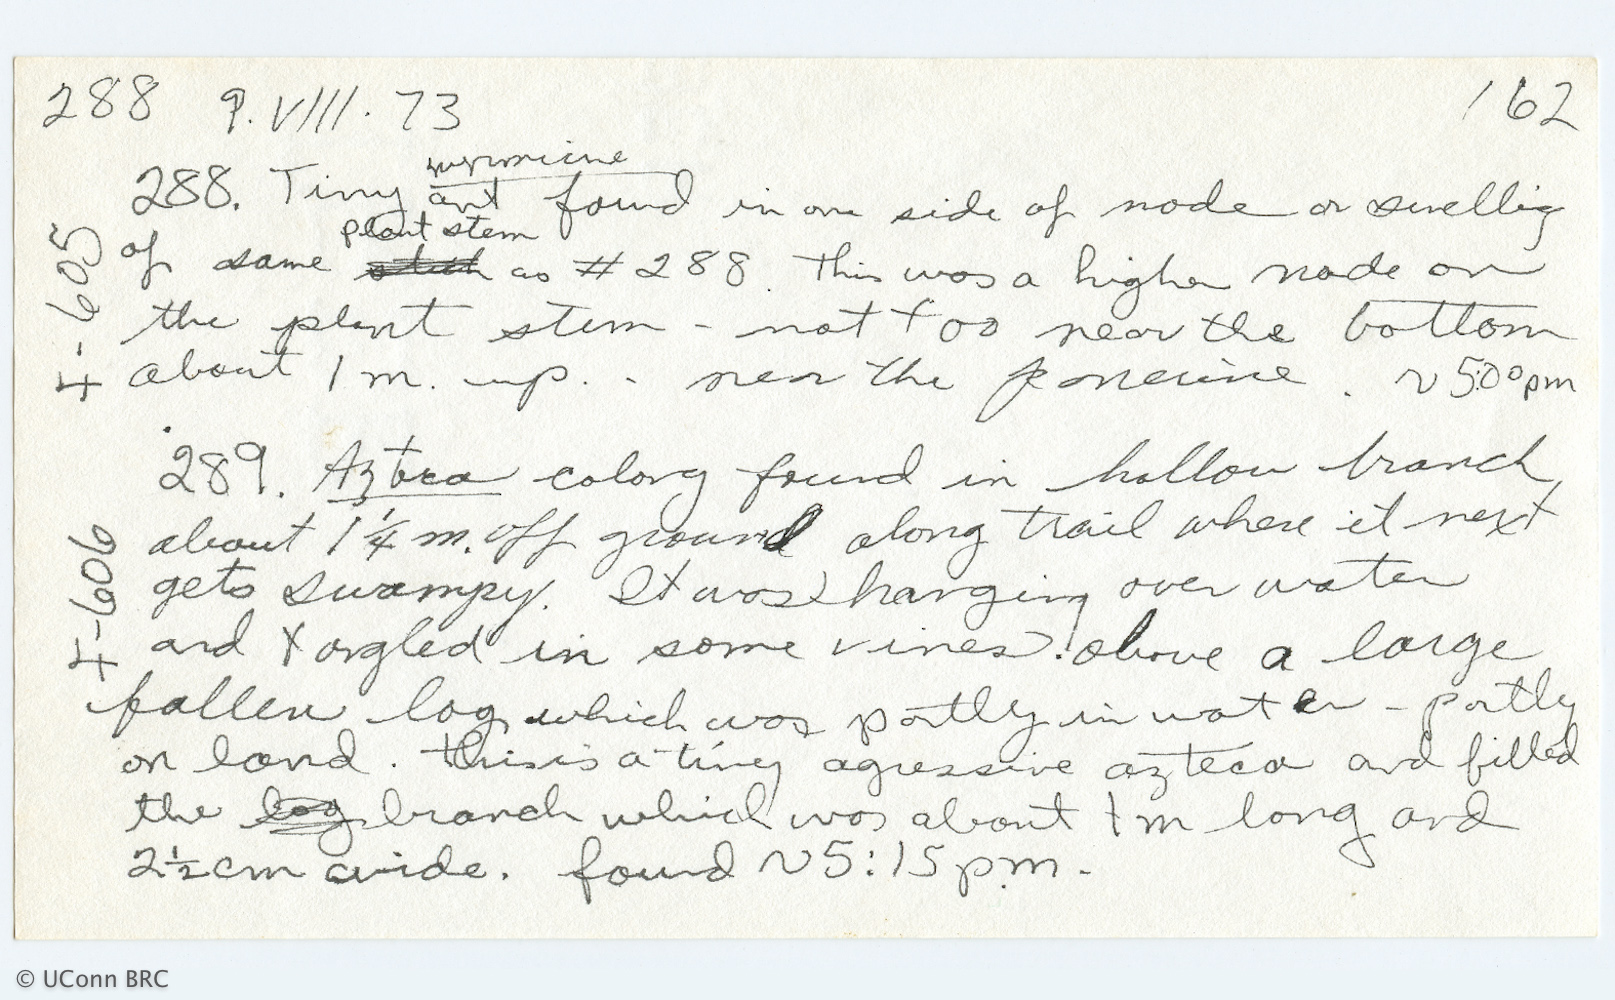 288 9.VIII.73 162
myrmicine
288. Tiny ant found in one side of node or swelling
plant stem
of same as # 288. This was a higher node on
the plant stem - not too near the bottom
about 1 m. up. - near the ponerine. ~ 5:00 pm
4-605
289. Azteca colony found in hollow branch
about 1 1/4 m. off ground along trail where it next
gets swampy. It was hanging over water
and tangled in some vines. above a large
fallen log which was partly in water - partly
on land. This is a tiny agressive azteca and filled
the log branch which was about 1 m long and
2 1/2 cm wide. found ~ 5:15 p.m.
4-606
© UConn BRC